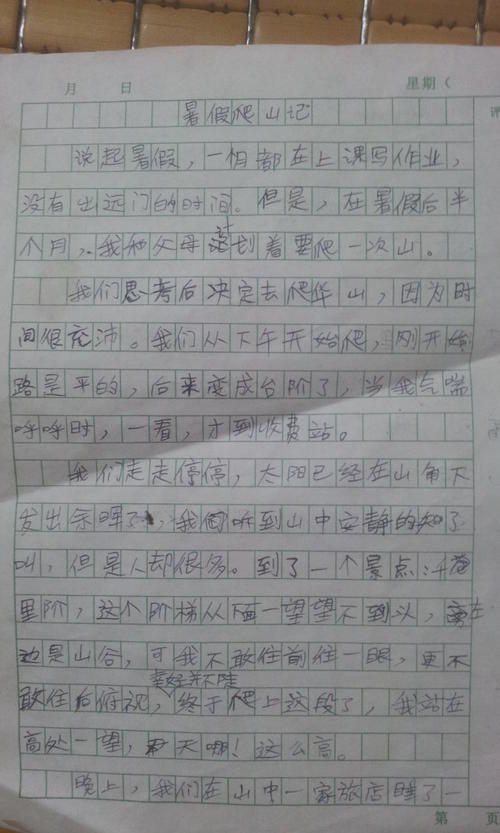 月 日 星期（
评
暑假爬山记
说起暑假，一相都在上课写作业，
没有出远门的时间。但是，在暑假后半
个月，我和父母计划着要爬一次山。
我们思考后决定去爬华山，因为时
间很充沛。我们从下午开始爬，刚开始
路是平的，后来变成台阶了，当我气喘
呼呼时，一看，才到收费站。
我们走走停停，太阳已经在山角下
发出余晖了，我们听到山中安静的知了
叫，但是人却很多。到了一个景点：千
里阶，这个阶梯从下面一望望不到头，旁
边是山谷，可我不敢住前住一眼，更不
幸好并不陡
敢住后俯视，终于爬上这段了，我站在
高处一望，天哪！这么高。
晚上，我们在山中一家旅店睡了一
第 页